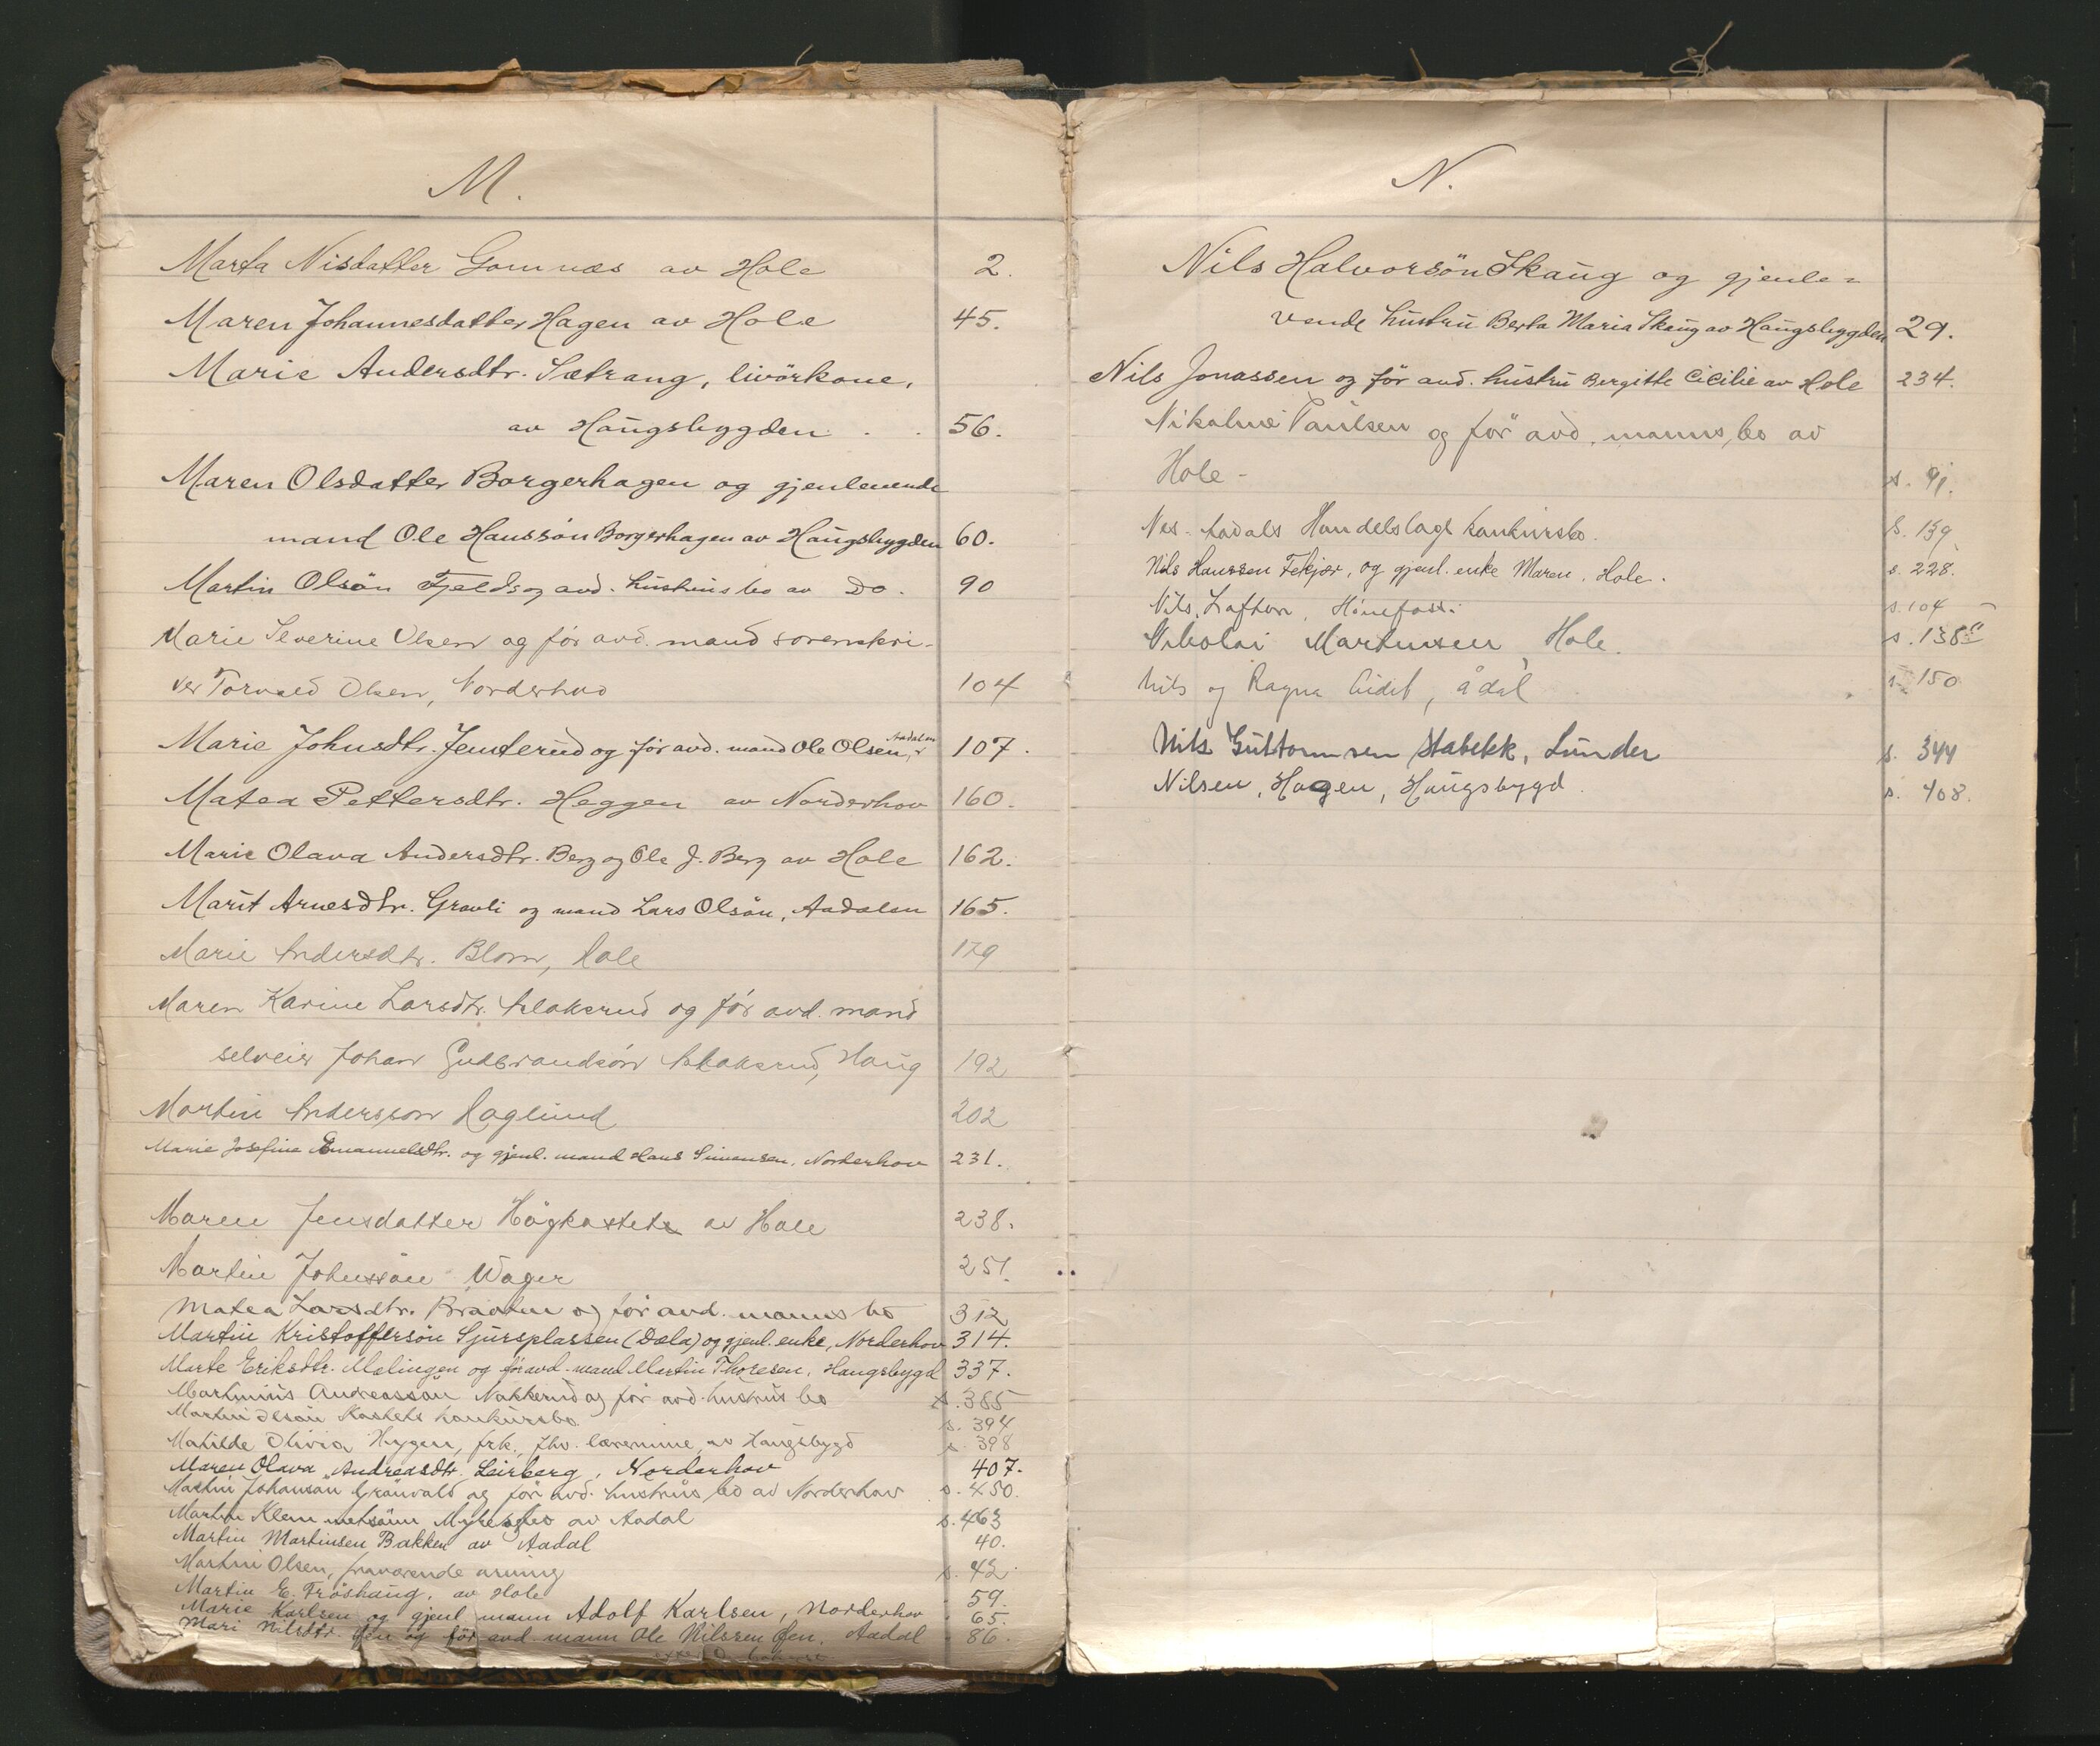 M.
Marta Nisdatter Gomnæs av Hole 2.
Maren Johannesdatter Hagen av Hole 45.
Marie Andersdtr. Sætrang, livörkone,
av Haugsbygden . . 56.
Maren Olsdatter Borgerhagen og gjenlevende
mand Ole Hanssön Borgerhagen av Haugsbygden 60.
Martin Olsön Fjelds og avd. hustrus bo av Do. 90
Marie Severine Olsen og för avd. mand sorenskri-
ver Torvald Olsen, Norderhov 104
Marie Johnsdtr. Jenterud og för avd. mand Ole Olsen, Aadalen 107.
Matea Pettersdtr. Heggen av Norderhov 160.
Marie Olava Andersdtr. Berg og Ole J. Berg av Hole 162.
Marit Arnesdtr. Gravli og mand Lars Olsön, Aadalen 165.
Marie Andersdtr. Blom, Hole 179
Maren Karine Larsdtr. og för avd. mand
selveier Johan Gudbrandsön Haug 192
Martin Andersson Haglund 202
Marie Josefine Emanuelsdtr. og gjenl. mand Hans Simensen, Norderhov 231.
Maren Jensdatter Högkastet av Hole 238.
Martin Johnssön Wager 251.
Matea Larsdtr. Braaten og för avd. manns bo 312
Martin Kristoffersön Sjursplassen (Dæla) og gjenl. enke, Norderhov 314.
Marte Eriksdtr. Mælingen og för avd. mand Martin Thoresen, Haugsbygd 337.
Martinius Andreassön Nakkerud og för avd. hustrus bo s. 385
Martin Olsön Kastets konkursbo s. 394
Matilde Olivia Hygen, frk., fhv. lærerinne, av Haugsbygd s. 398
Maren Olava Andreasdtr. Leirberg, Norderhov 407.
Martin Johansen Grönvold og för avd. hustrus bo av Norderhov s. 450.
Martin Klemmetsönn av Aadal s. 463
Martin Martinsen Bakken av Aadal 40.
Martin Olsen, fraværende arving s. 42.
Martin E. Fröshaug, av Hole 59.
Marie Karlsen og gjenl mann Adolf Karlsen, Norderhov 65.
Mari Nilsdtr. Öen og för avd. mann Ole Nilssen Öen, Aadal 86.
N.
Nils Halvorsön Skaug og gjenle-
vende hustru Berta Maria Skaug av Haugsbygden 29.
Nils Jonassen og för avd. hustru Bergitte Cicilie av Hole 234.
Nikoline Paulsen og för avd. manns bo av
Hole - s. 91.
Nes - Aadals Handelslags konkursbo. s. 139
Nils Hanssen Fekjær, og gjenl. enke Maren. Hole. s. 228.
Nils Loftsen, Hönefoss. s. 104
Nikolai Martinsen, Hole. s. 138
Nils og Ragna Eidet, Ådal s. 150
Nils Guttormsen Stabekk, Lunder s. 344
Nilsen, Hagen, Haugsbygd. s. 408.